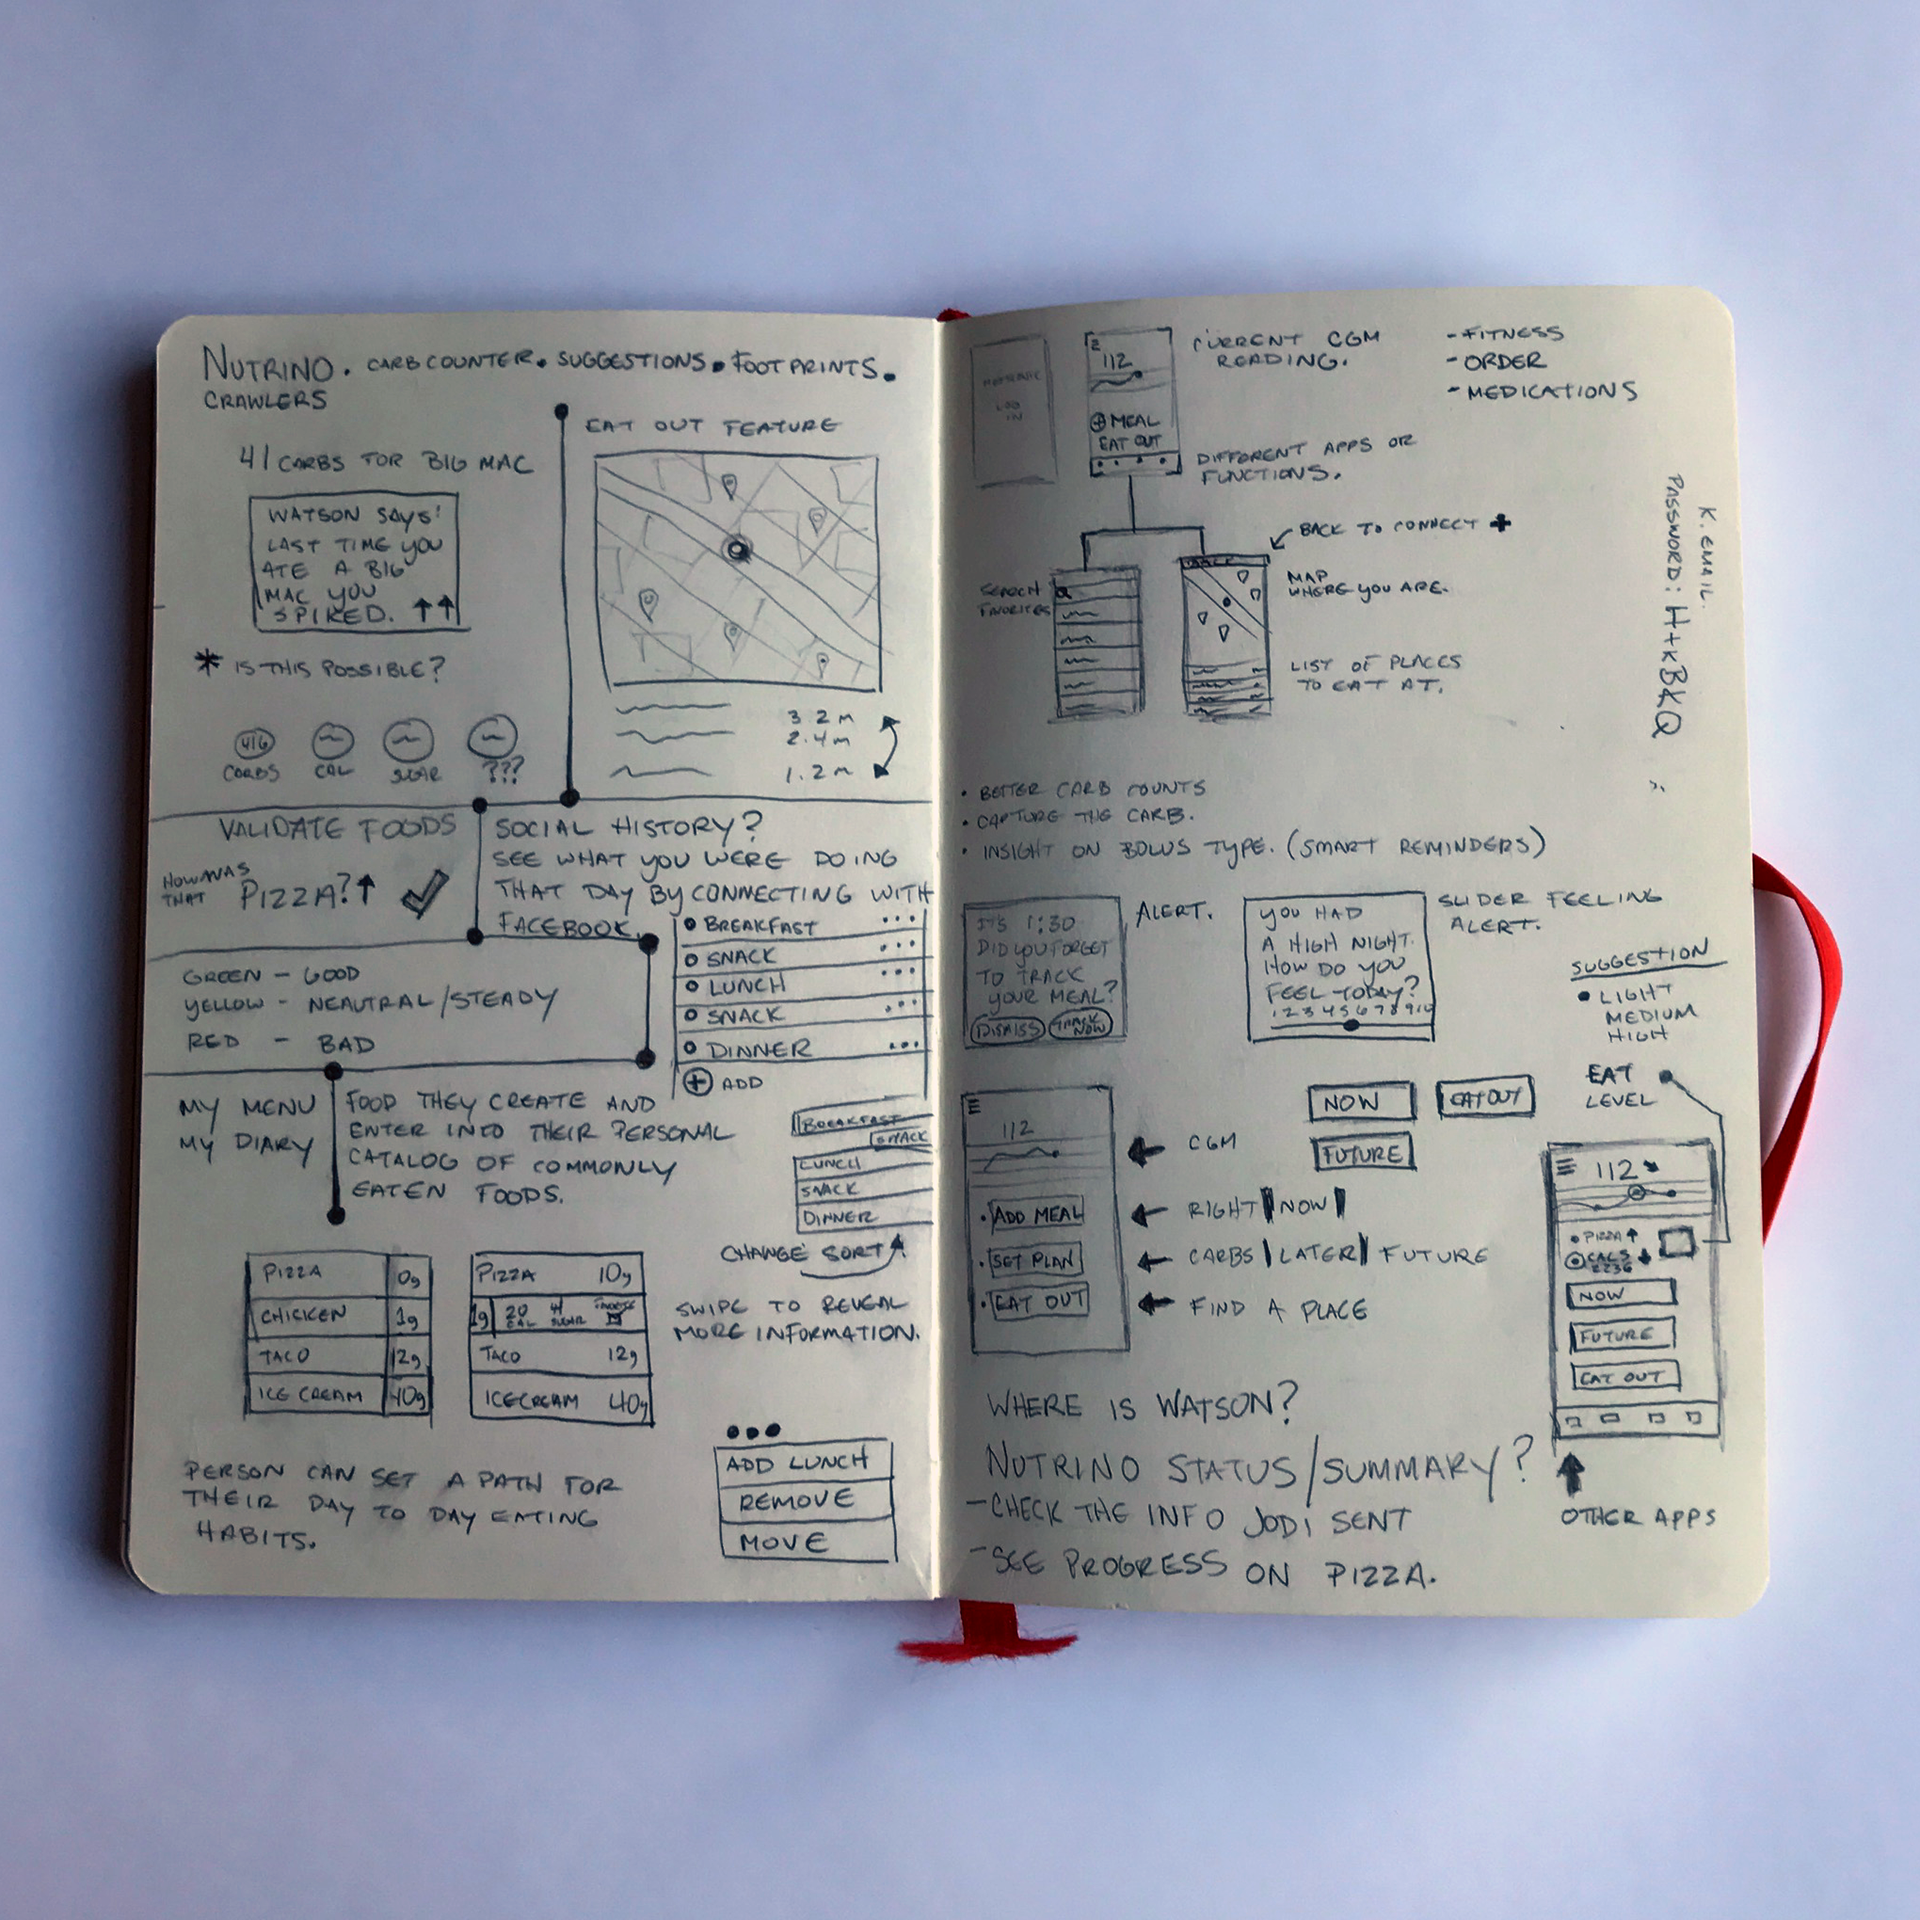 NUTRINO. CARB COUNTER. SUGGESTIONS. FOOTPRINTS.
CRAWLERS
41 CARBS FOR BIG MAC
WATSON SAYS:
LAST TIME YOU
ATE A BIG
MAC YOU
SPIKED. ↑↑
* IS THIS POSSIBLE?
41G
CARBS
CAL
SUGAR
???
EAT OUT FEATURE
3.2 M
2.4 M
1.2 M
VALIDATE FOODS
HOW WAS
THAT PIZZA? ↑
SOCIAL HISTORY?
SEE WHAT YOU WERE DOING
THAT DAY BY CONNECTING WITH
FACEBOOK.
GREEN - GOOD
YELLOW - NEAUTRAL/STEADY
RED - BAD
BREAKFAST ...
SNACK ...
LUNCH ...
SNACK ...
DINNER ...
+ ADD
MY MENU
MY DIARY
FOOD THEY CREATE AND
ENTER INTO THEIR PERSONAL
CATALOG OF COMMONLY
EATEN FOODS.
BREAKFAST
SNACK
LUNCH
SNACK
DINNER
CHANGE SORT
PIZZA 0g
CHICKEN 1g
TACO 12g
ICE CREAM 40g
PIZZA 10g
1g 20 CAL 41 SUGAR
TACO 12g
ICECREAM 40g
SWIPE TO REVEAL
MORE INFORMATION.
PERSON CAN SET A PATH FOR
THEIR DAY TO DAY EATING
HABITS.
ADD LUNCH
REMOVE
MOVE
LOG
IN
112
+ MEAL
EAT OUT
CURRENT CGM
READING.
- FITNESS
- ORDER
- MEDICATIONS
DIFFERENT APPS OR
FUNCTIONS.
BACK TO CONNECT +
SEARCH
FAVORITES
MAP
WHERE YOU ARE.
LIST OF PLACES
TO EAT AT.
K. EMAIL.
PASSWORD: H+KBKQ
• BETTER CARB COUNTS
• CAPTURE THE CARB.
• INSIGHT ON BOLUS TYPE. (SMART REMINDERS)
IT'S 1:30
DID YOU FORGET
TO TRACK
YOUR MEAL?
DISMISS TRACK NOW
ALERT.
YOU HAD
A HIGH NIGHT.
HOW DO YOU
FEEL TODAY?
1 2 3 4 5 6 7 8 9 10
SLIDER FEELING
ALERT.
SUGGESTION
• LIGHT
MEDIUM
HIGH
EAT
LEVEL
NOW
EAT OUT
FUTURE
112
• ADD MEAL
• SET PLAN
• EAT OUT
← CGM
← RIGHT | NOW |
← CARBS | LATER | FUTURE
← FIND A PLACE
112
• PIZZA ↑
CALS
2236
NOW
FUTURE
EAT OUT
OTHER APPS
WHERE IS WATSON?
NUTRINO STATUS/SUMMARY?
- CHECK THE INFO JODI SENT
- SEE PROGRESS ON PIZZA.